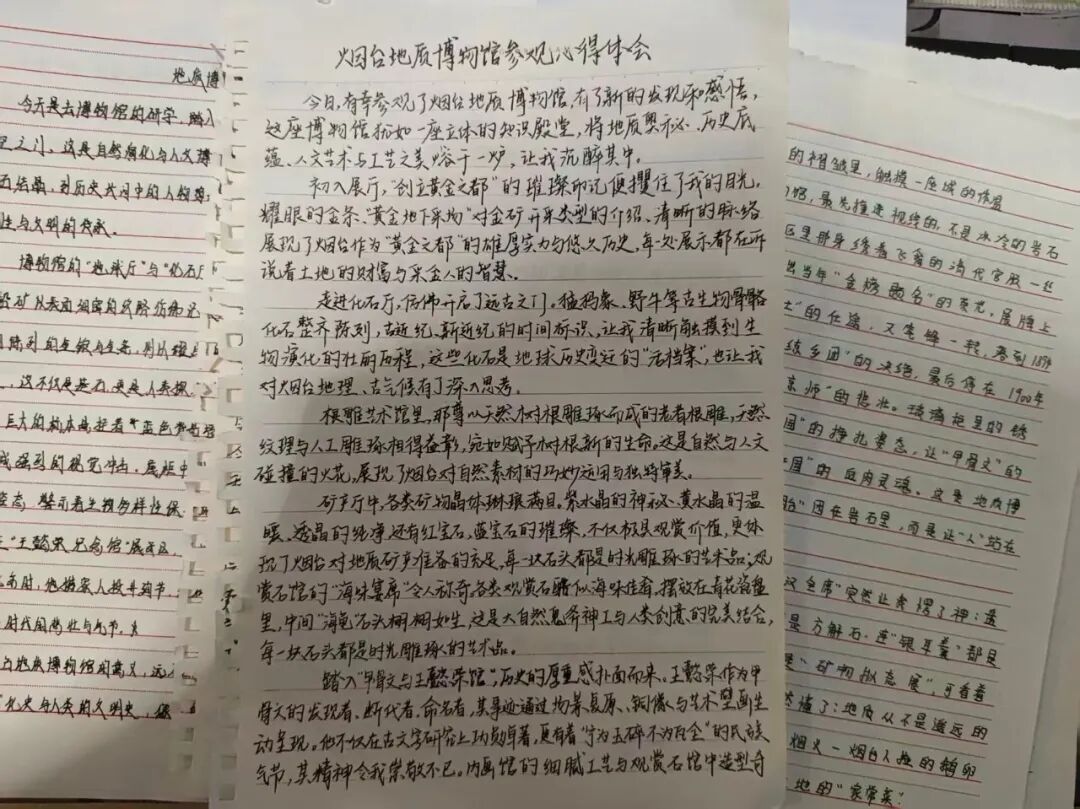 地质博
今天是去博物馆的研学,踏入
之门,这是自然演化与人文
性与文明的
博物馆的"地球厅"与"化石
巨大的
感强烈的视觉冲击,展柜中
姿态,警示着生物多样性保
"王懿荣纪念馆"展区
与地质博物馆的意义,远
化史与人类的文明史,
烟台地质博物馆参观心得体会
今日,有幸参观了烟台地质博物馆,有了新的发现和感悟,
这座博物馆犹如一座立体的知识殿堂,将地质奥秘、历史底
蕴、人文艺术与工艺之美熔于一炉,让我沉醉其中。
初入展厅,"创立黄金之都"的璀璨印记便攫住了我的目光。
耀眼的金条、"黄金地下采场"对金矿开采类型的介绍、清晰的脉络
展现了烟台作为"黄金之都"的雄厚实力与悠久历史,每一处展示都在诉
说着土地的财富与采金人的智慧。
走进化石厅,仿佛开启了远古之门。猛犸象、野牛等古生物骨骼
化石整齐陈列,古近纪、新近纪的时间标识,让我清晰触摸到生
物演化的壮丽历程,这些化石是地球历史变迁的"活档案",也让我
对烟台地理、古气候有了深入思考。
根雕艺术馆里,那尊以天然树根雕琢而成的老者根雕,天然
纹理与人工雕琢相得益彰,宛如赋予树根新的生命。这是自然与人文
碰撞的火花,展现了烟台对自然素材的巧妙运用与独特审美。
矿产厅中,各类矿物晶体琳琅满目。紫水晶的神秘、黄水晶的温
暖、透晶的纯净还有红宝石,蓝宝石的璀璨,不仅极具观赏价值,更体
现了烟台对地质矿产准备的充足,每一块石头都是时光雕琢的艺术品;观
赏石馆的"海味宴席"令人称奇各类观赏石酷似海味佳肴,摆放在青花瓷盘
里,中间"海龟"石头栩栩如生,这是大自然鬼斧神工与人类创意的完美结合,
每一块石头都是时光雕琢的艺术品。
踏入"甲骨文与王懿荣馆",历史的厚重感扑面而来。王懿荣作为甲
骨文的发现者、断代者、命名者,其事迹通过场景复原、铜像与艺术壁画生
动呈现。他不仅在古文字研究上功勋卓著,更有着"宁为玉碎不为瓦全"的民族
气节,其精神令我崇敬不已。内画馆的细腻工艺与观赏石馆中造型奇
的褶皱里,触摸一座城的
馆,最先撞进视线的,不是冰冷的岩石
区里那身绣着飞禽的清代官服一
出当年"金榜题名"的荣光,展牌上
士"的仕途,又笔锋一转,落到1894
练乡团"的决绝,最后停在1900年
京师"的悲壮。玻璃柜里的锈
国"的挣扎姿态,让"甲骨文"的
的血肉灵魂。这里地质博
"困在岩石里,而是让"人"站在
汉全席"突然让我愣了神:
是方解石,连"银耳羹"都是
"矿物拟态展",可看着
然懂了:地质从不是遥远的
烟火—烟台人捡的鹅卵
地的"家常菜"